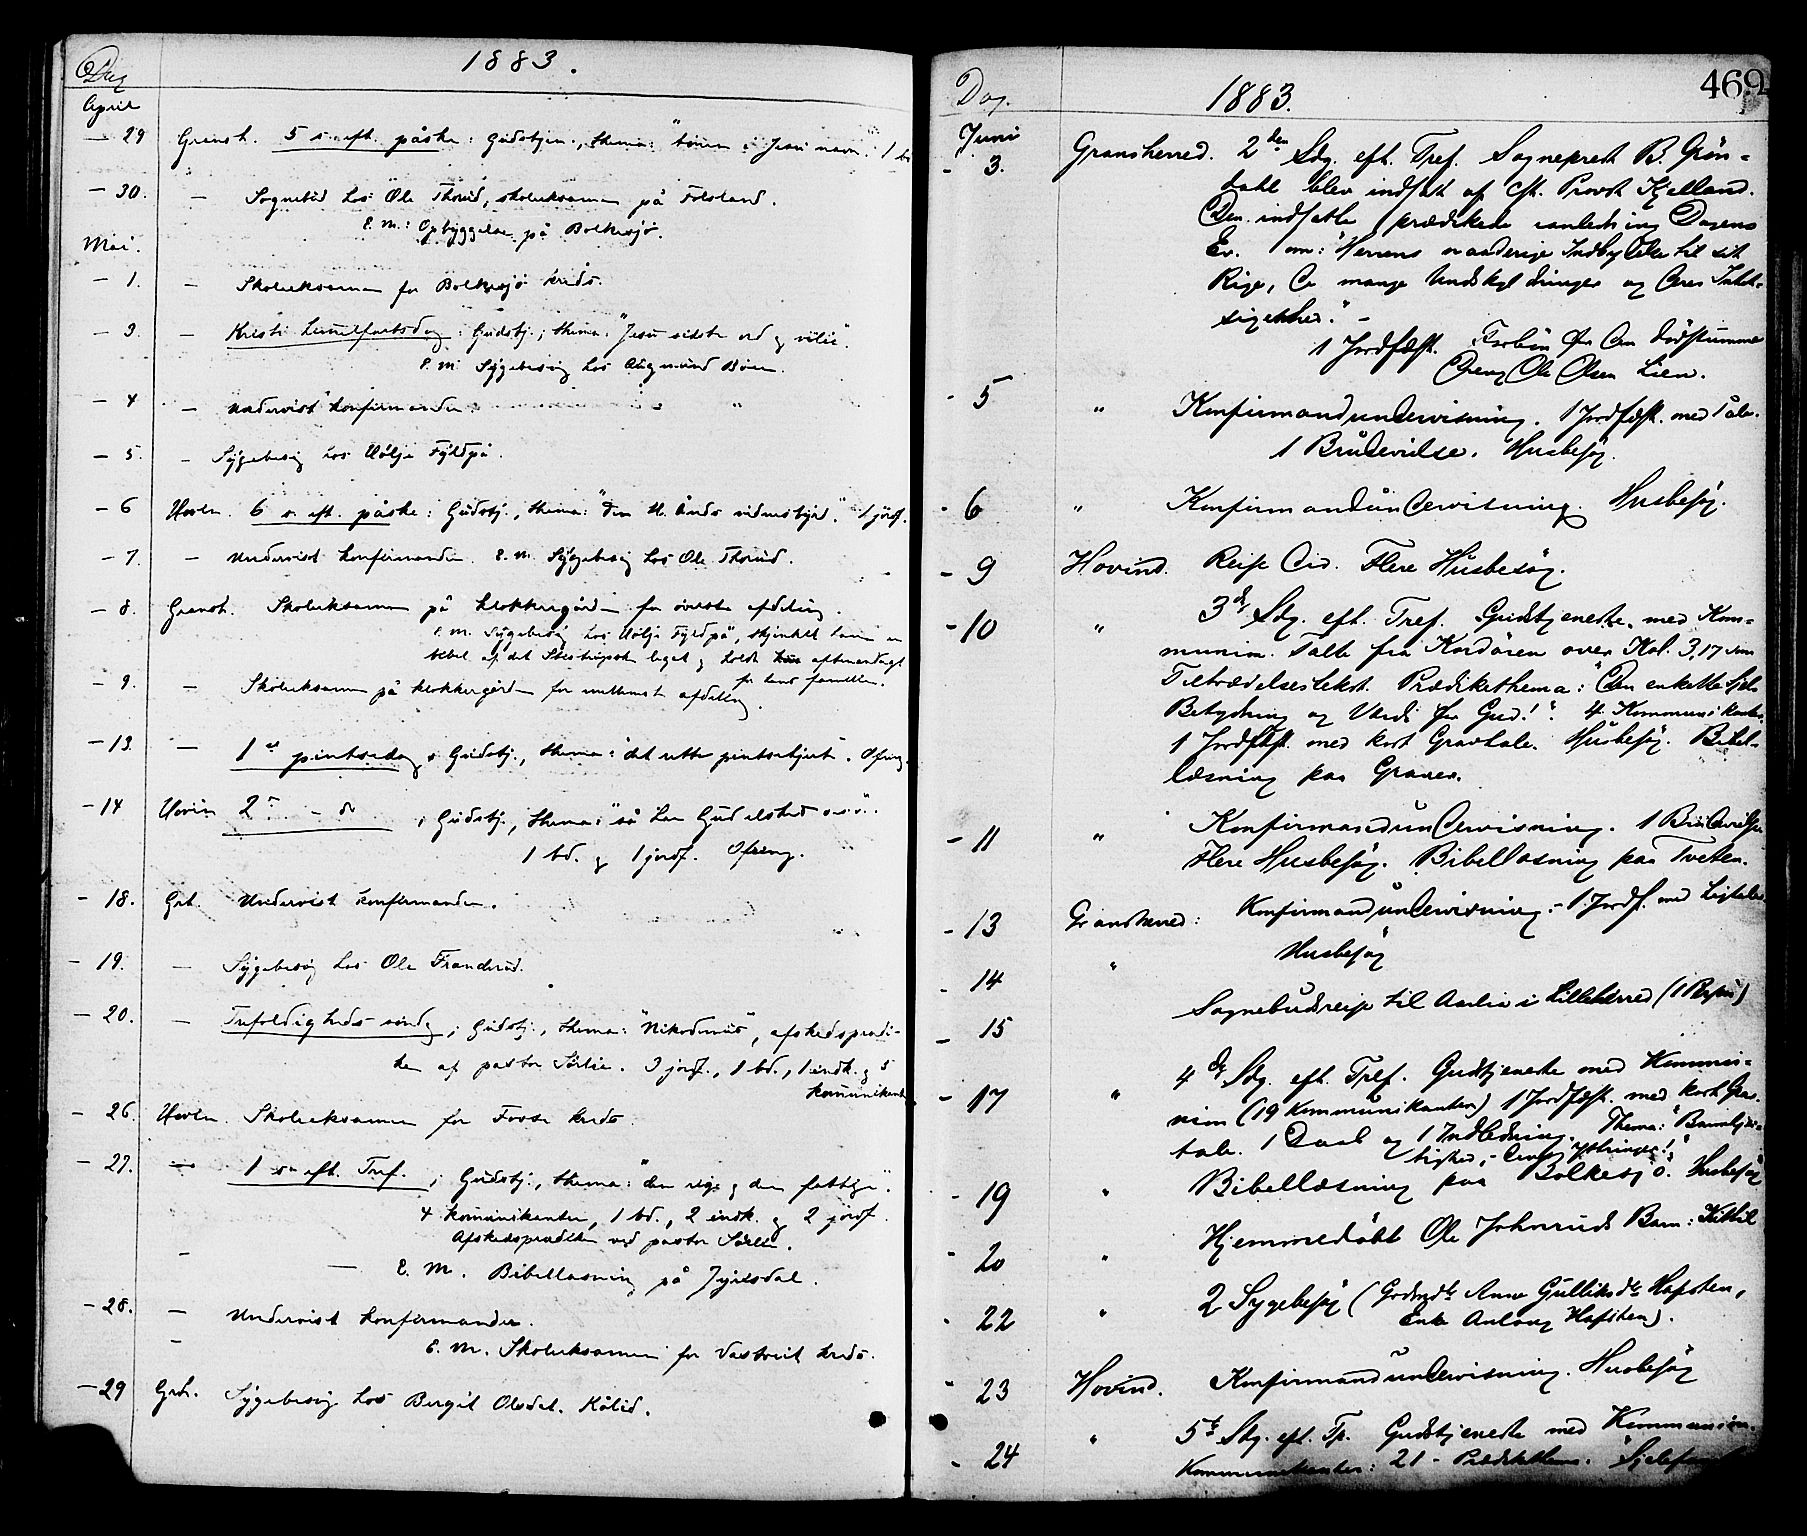 Dag
1883.
April
– 29 Gransh. 5 s. eft. påske: Gudstjen., thema: "bönen i Jesu navn". 1 bd
– 30. – Sognebud hos Ole Thorud, skoleeksamen på Folsland.
E. M.: Opbyggelse på Bolkesjø.
Mai.
– 1. – Skoleeksamen for Bolkesjø kreds.
– 3. – Kristi himmelfartsdag: Gudstj., thema: "Jesu sidste ord og vilie".
E. M. Sygebesøg hos Aagmund Böen.
– 4 – Undervist konfirmander.
– 5. – Sygebesøg hos Kölje Fyldpå.
– 6 Hovin. 6 s. eft. påske: Gudstj., thema: "Den H. Ånds vidnesbyrd". 1 jordf.
– 7. – Undervist konfirmander. E. M. Sygebesøg hos Ole Thorud.
– 8. Gransh. Skoleeksamen på klokkergården for överste afdeling.
E. M. Sygebesøg hos Kölje Fyldpå, skjenket ham en
bibel af det legat og holdt aftenandagt
for hans familien.
– 9. – Skoleeksamen på klokkergården for mellemste afdeling.
– 13. – 1ste pintsedag; Gudstj., thema: "det rette pintsehjert". Ofring.
– 14 Hovin 2den – do ; Gudstj., thema: "så har Gud elsket os".
1 bd. og 1 jordf. Ofring.
– 18. Grh. Undervist konfirmander.
– 19. – Sygebesøg hos Ole Franderud.
– 20. – Trefoldigheds söndag; Gudstj., thema: "Nikodemus", afskedspredi-
ken af pastor Sörlie. 3 jordf., 1 bd., 1 indk. og 5
komunikanter
– 26. Hovin. Skoleeksamen for Fosse kreds.
– 27. – 1 s. eft. Tref.; Gudstj., thema: "den rige og den fattige".
4 komunikanter, 1 bd., 2 indk. og 2 jordf.
Afskedsprediken ved pastor Sörlie.
– – E. M. Bibellæsning på Jyrisdal.
– 28. – Undervist konfirmander.
– E. M. Skoleeksamen for Vastveit kreds.
– 29 Grh. Sygebesøg hos Bergit Olsdat. Kålid.
469
Dag.
1883.
Juni
– 3. Gransherred. 2den Sdg. eft. Tref. Sogneprest B. Grön-
dahl blev indsat af cst. Provst Kjelland.
Den indsatte prædikede i anledning Dagens
Ev. om: "Herrens naaderige Indbydelse til sit
Rige, de mange Undskyldninger og deres Intet-
sigenhed." –
1 Jordfæst. Forbön for den dövstumme
Dreng Ole Olsen Lien.
– 5 " Konfirmandundervisning. 1 Jordfæst. med Tale.
1 Brudevielse. Husbesøg.
– 6 " Konfirmandundervisning. Husbesøg.
– 9 Hovind. Reise did. Flere Husbesøg.
– 10 " 3die Sdg. eft. Tref. Gudstjeneste med Kom-
munion. Talte fra Kordören over Kol. 3,17 som
Tiltrædelsestekst. Prædikethema: "Den enkelte Sjels
Betydning og Værdi for Gud!". 4 Kommunikanter.
1 Jordfæst. med kort Gravtale. Husbesøg. Bibel-
læsning paa Graver.
– 11 " Konfirmandundervisning. 1 Brudevielse
Flere Husbesøg. Bibellæsning paa Tveten.
– 13 Gransherred: Konfirmandundervisning. – 1 Jordf. med Ligtale.
– 14 " Husbesøg
– 15 Sognebudsreise til i Lilleherred (1 Person)
– 17 " 4de Sdg. eft. Tref. Gudstjeneste med Kommu-
nion (19 Kommunikanter) 1 Jordfæst. med kort Grav-
tale. 1 Daab og 1 Indledning. Thema: "Barmhjer-
tighed, – dens Ytringer!"
– 19 " Bibellæsning paa Bolkesjö. Husbesøg
– 20 " Hjemmedöbt Ole Johnruds Barn: Kittil
– 22 " 2 Sygebesøg (Anne Gulliksdtr Hafsten,
Enke Anlaug Hafsten).
– 23 Hovind. Konfirmandundervisning. Husbesøg
– 24 " 5te Sdg. eft. Tr. Gudstjeneste med Kommunion.
Kommunikanter: 21 – Prædikethema: